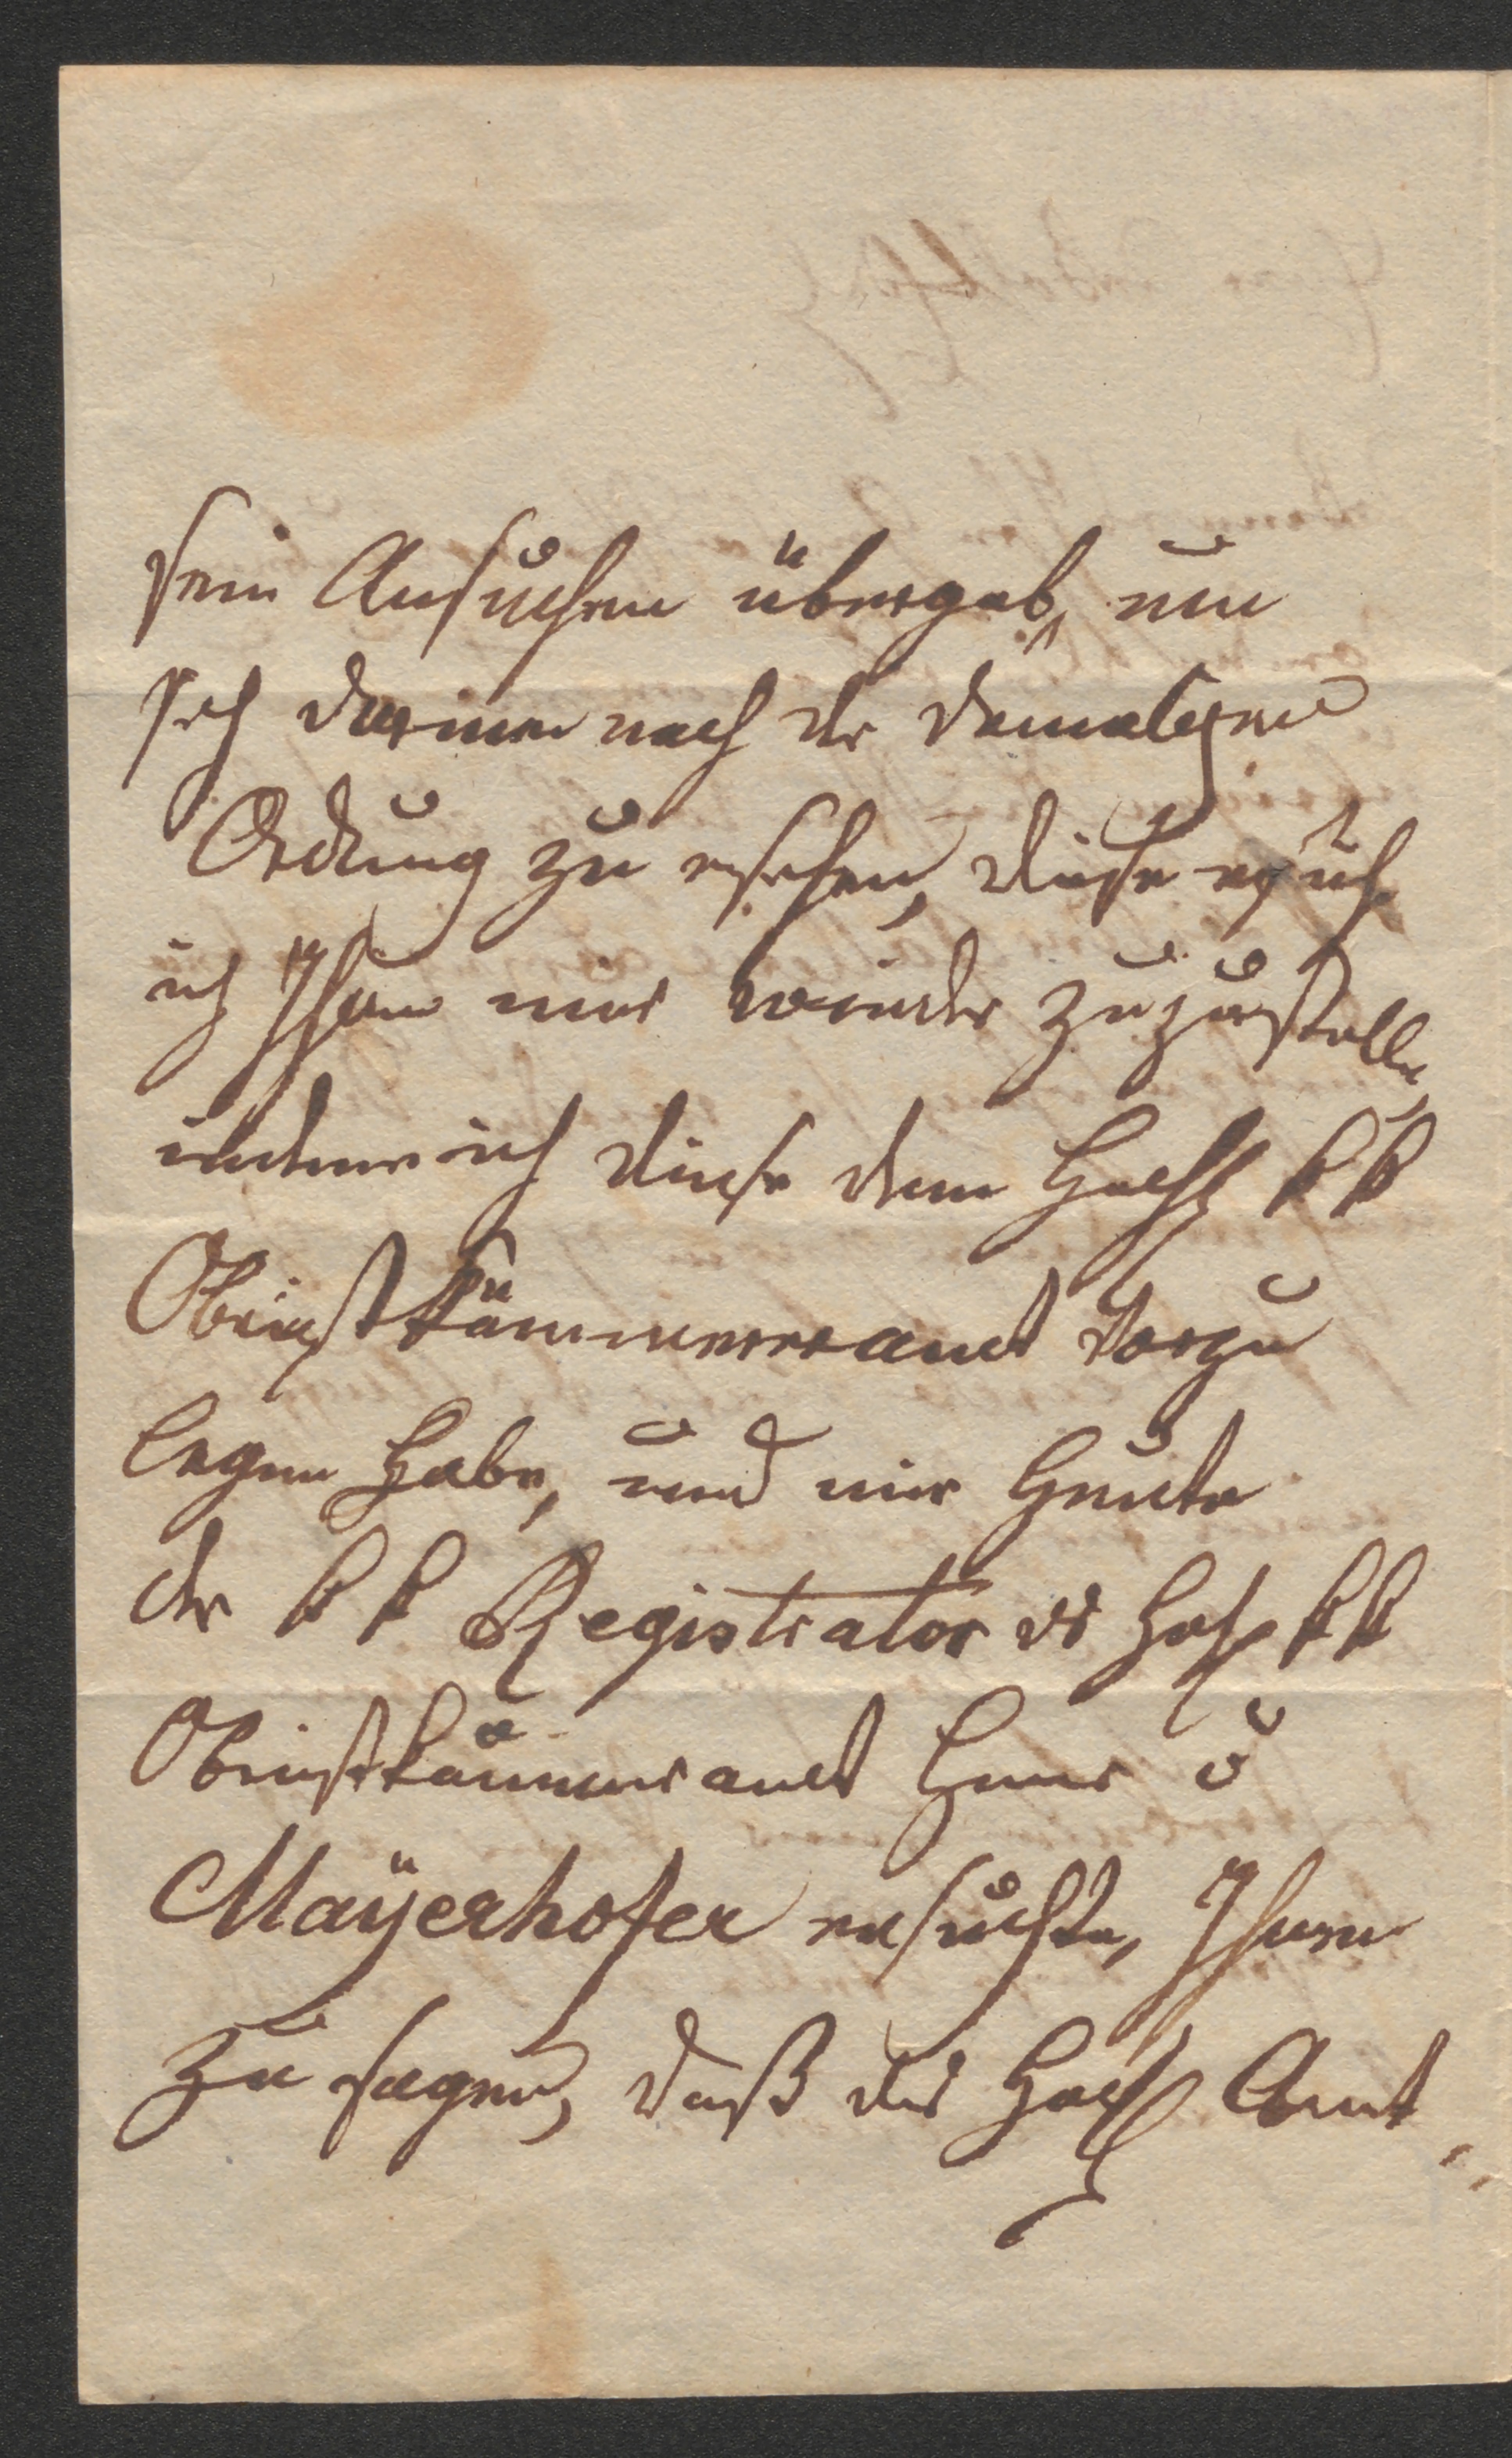 sein Ansuchen übergab, um
sich darinen nach der damaligen
Ordnung zu ersehen, diese ersuch
ich Ihnen mir wieder zuzustellen,
indeme ich diese dem Hochl k k
Obristkämmereramt vorzu
legen habe, und mir heute
der k k Registrator des Hochl k k
Obristkämmeramt Herr v
Mayerhofer ersuchte, Ihnen
zu sagen, daß das Hochl Amt